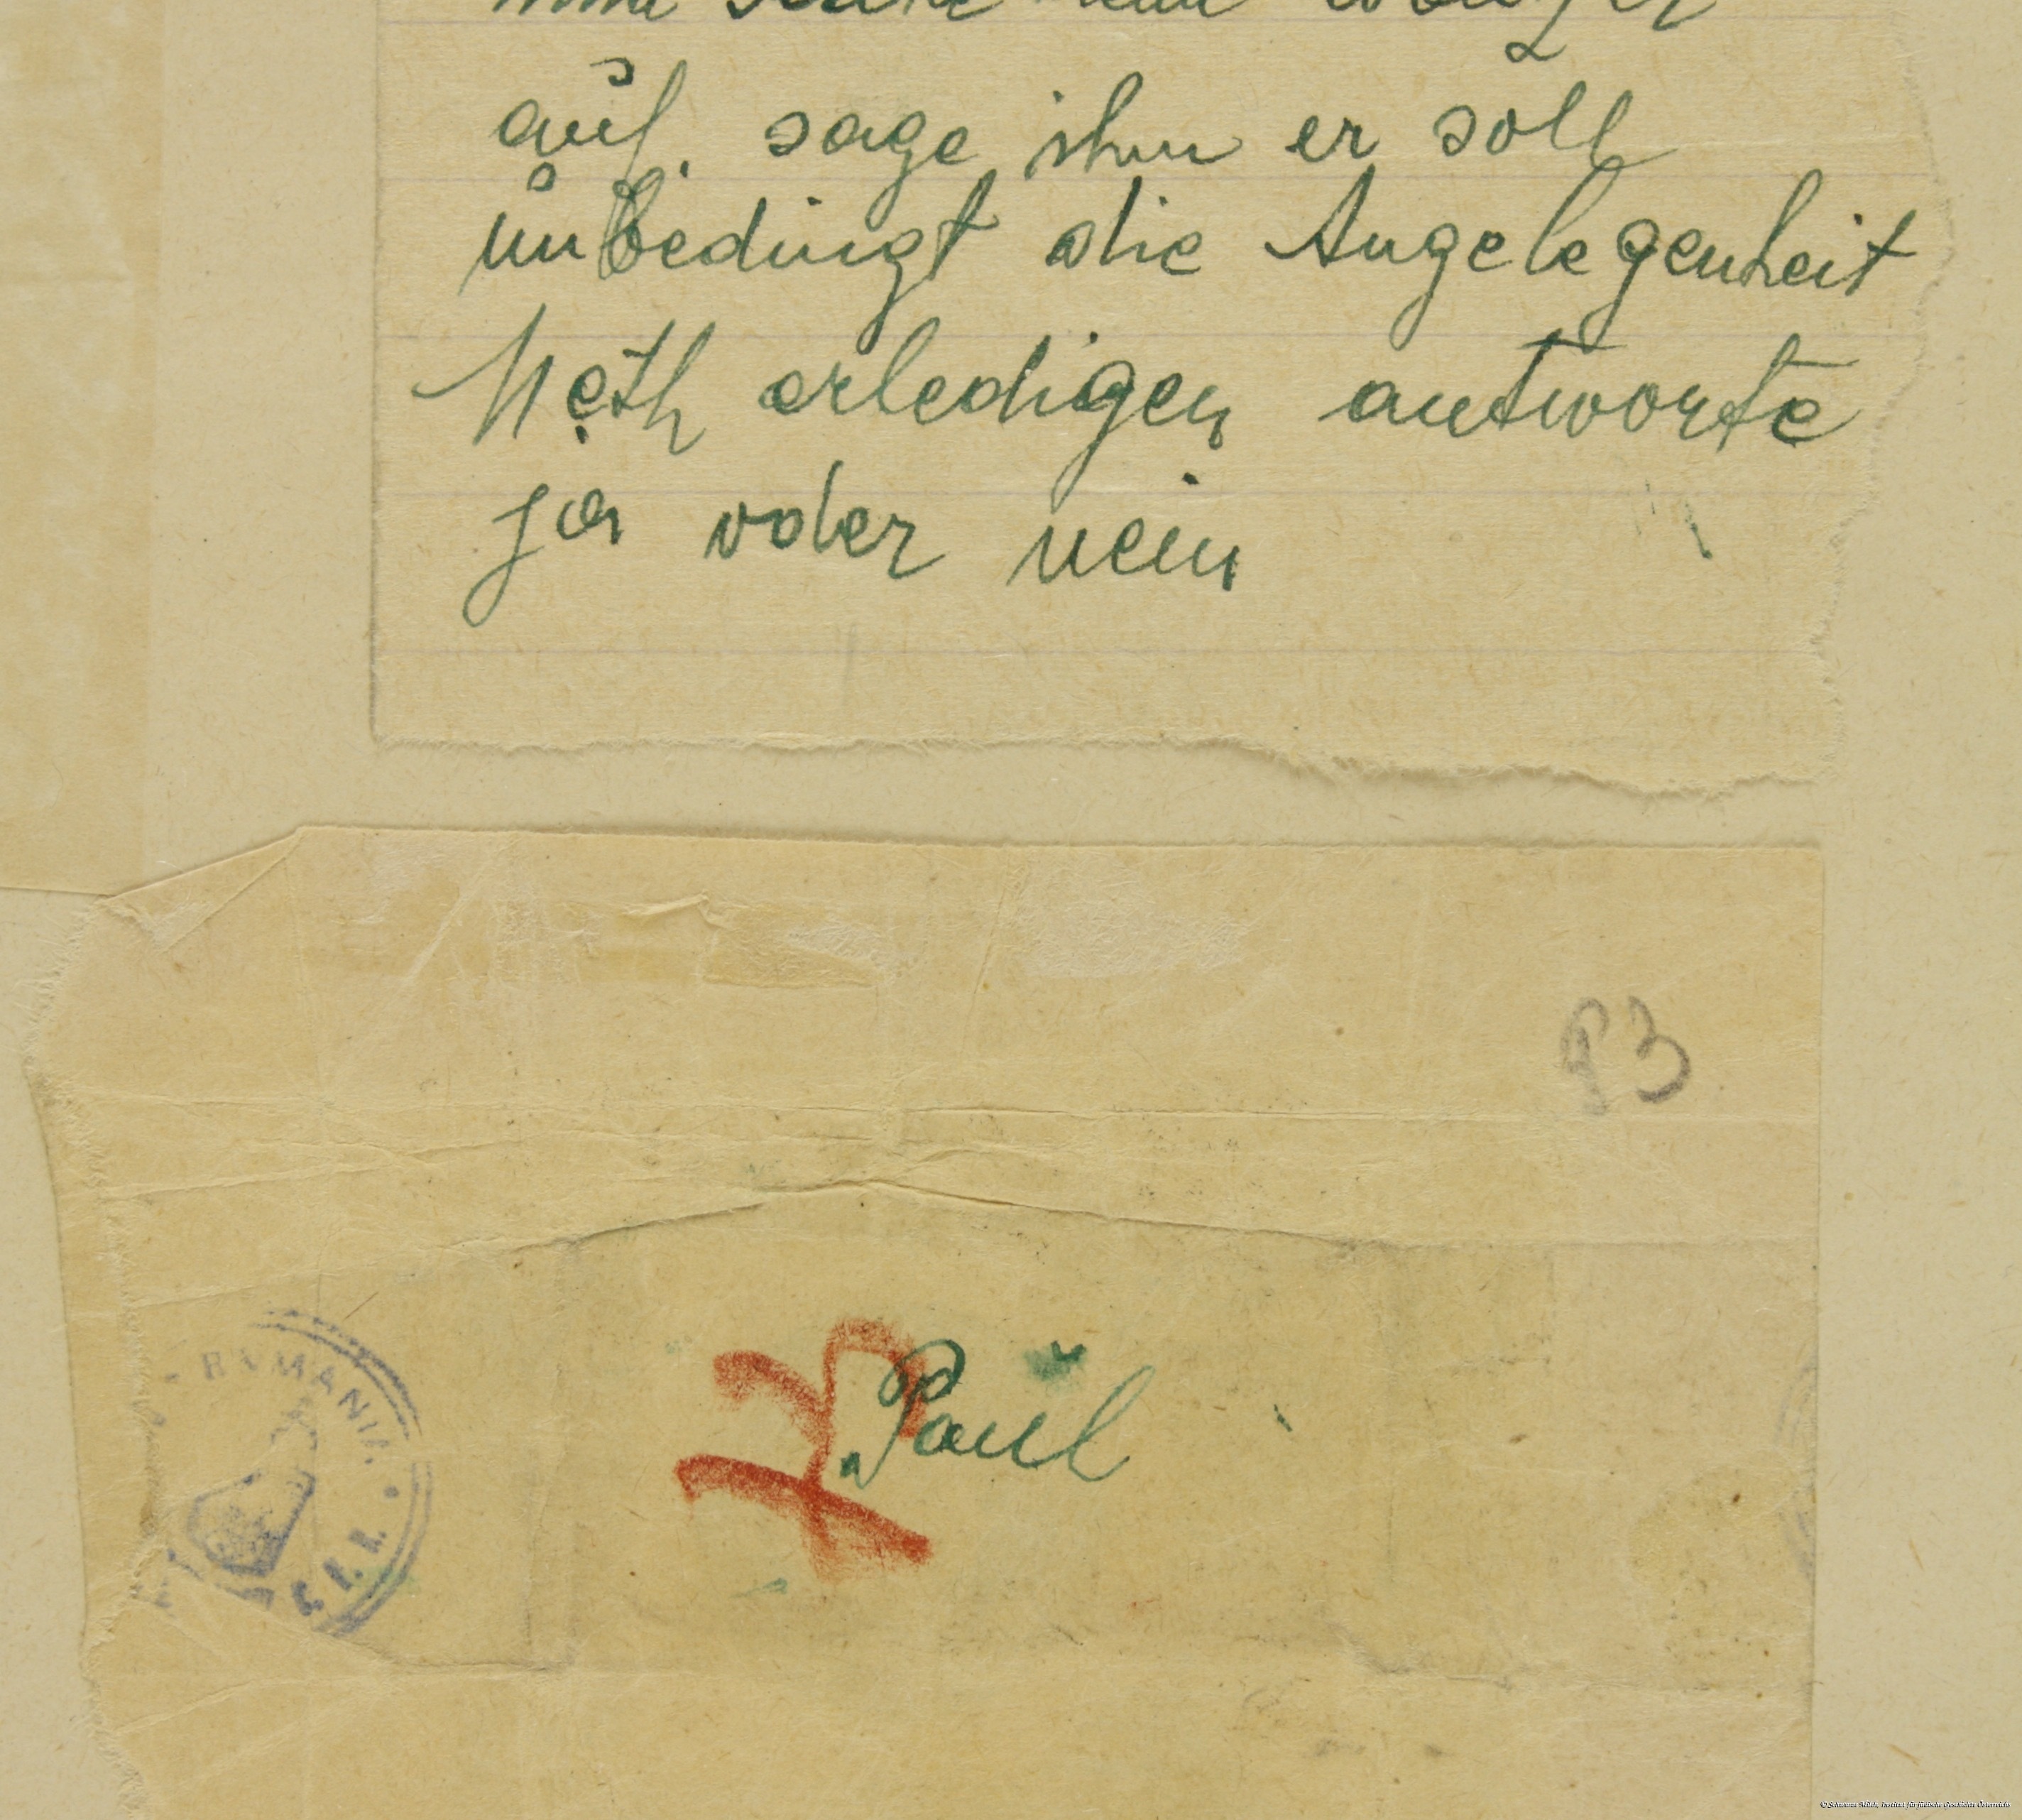 auf. sage ihm er soll
unbedingt die Angelegenheit
Neth erledigen antworte
ja oder nein
93
Paul
ROMANIA
© Schwarze Milch, Institut für jüdische Geschichte Österreichs